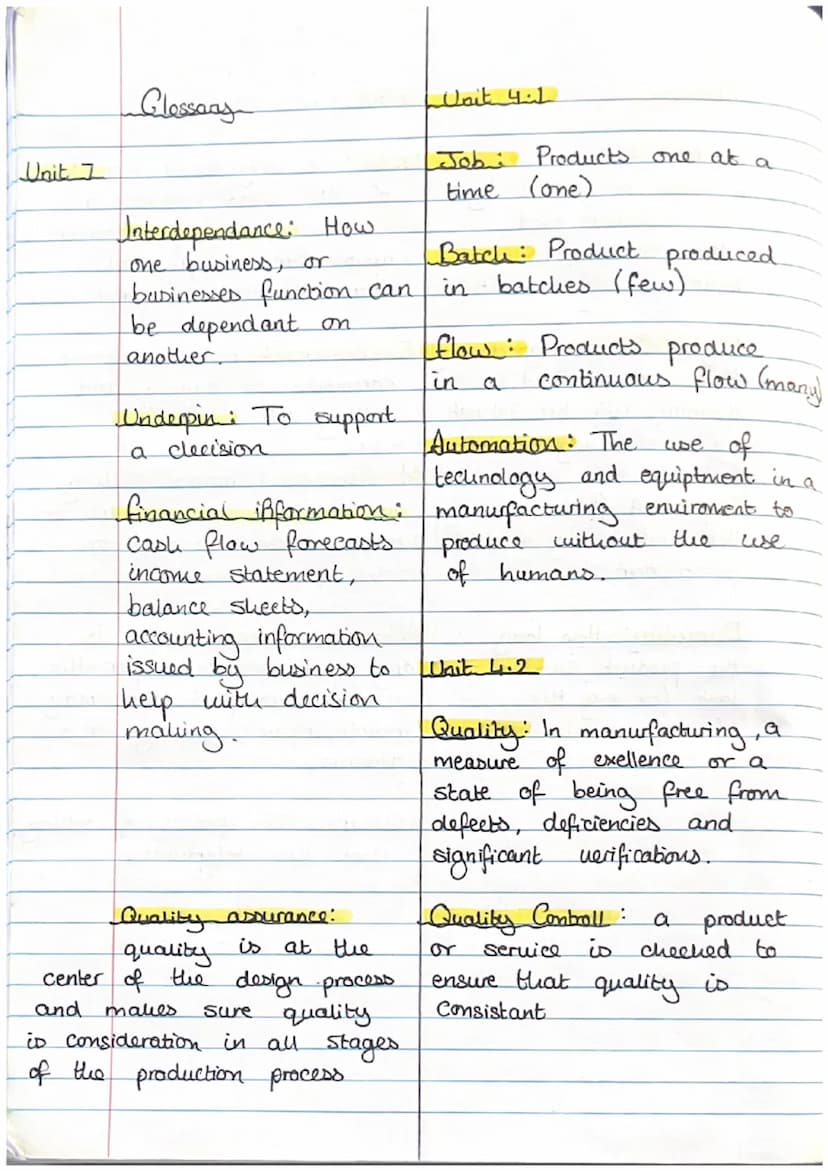 Glossary
Unit 7
Interdependance: How
one business, or
businesses function can
be dependant on
another.
Underpin: To support
a decision
financial information:
cash flow forecasts
income statement,
balance sheets,
accounting information
issued by business to
help with decision
making.
Quality assurance:
quality is at the
center of the design process
and makes sure quality
is consideration in all stages
of the production process
Unit 4.1
Job: Products one at a
time (one)
Batch: Product produced
in batches (few)
flow: Products produce
in a continuous flow (many)
Automation: The use of
technology and equiptment in a
manurfacturing enviroment to
produce without the use
of humans.
Unit 4.2
Quality: In manurfacturing, a
measure of exellence or a
state of being free from
defects, deficiencies and
significant verifications.
Quality Controll: a product
or service is checked to
ensure that quality is
Consistant